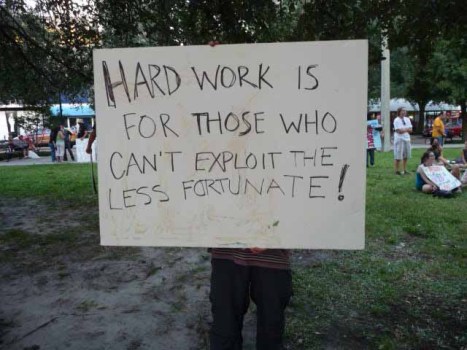 HARD WORK IS
FOR THOSE WHO
CAN'T EXPLOIT THE
LESS FORTUNATE!